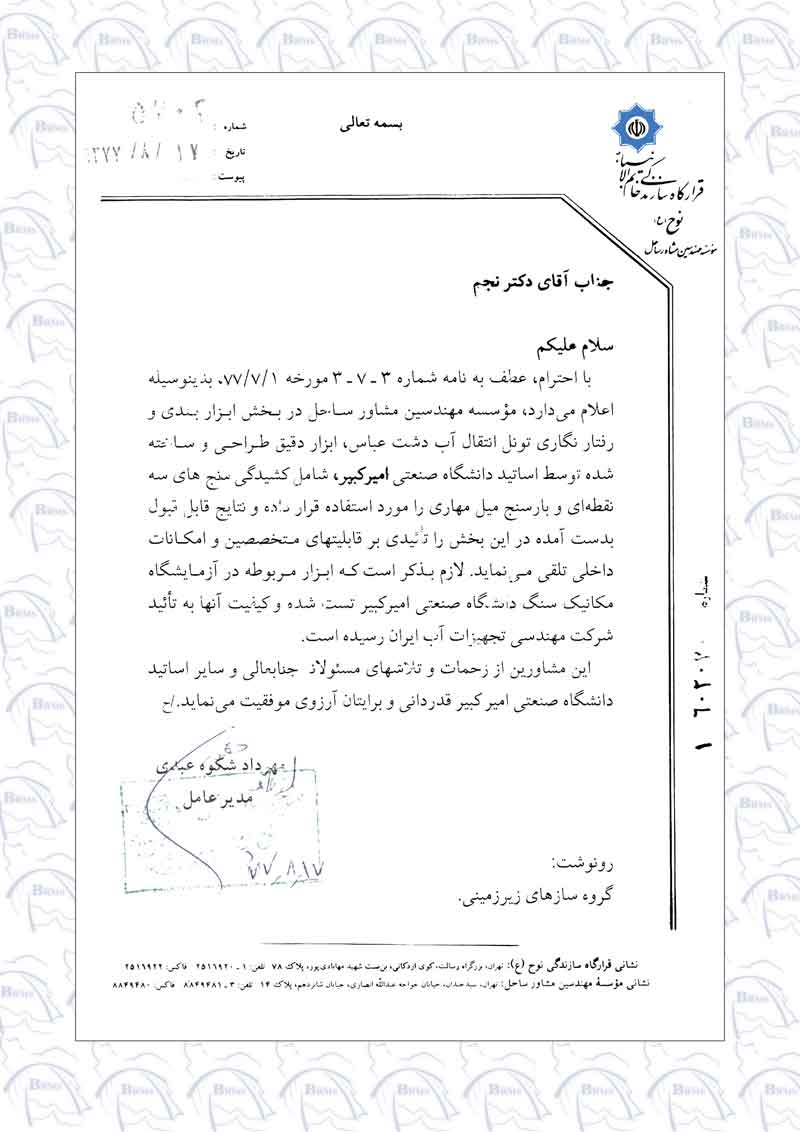 بسمه تعالی
شماره :
تاریخ : ۱۳۷۷/۸/۱۷
پیوست :
قرارگاه سازندگی خاتم الانبیاء
نوح (ع)
مؤسسه مهندسین مشاور ساحل
جناب آقای دکتر نجم
سلام علیکم
با احترام، عطف به نامه شماره ۳ ـ ۷ ـ ۳ مورخه ۷۷/۷/۱، بدینوسیله
اعلام می‌دارد، مؤسسه مهندسین مشاور ساحل در بخش ابزار بندی و
رفتار نگاری تونل انتقال آب دشت عباس، ابزار دقیق طراحی و ساخته
شده توسط اساتید دانشگاه صنعتی امیرکبیر، شامل کشیدگی سنج های سه
نقطه‌ای و بارسنج میل مهاری را مورد استفاده قرار داده و نتایج قابل قبول
بدست آمده در این بخش را تأئیدی بر قابلیتهای متخصصین و امکانات
داخلی تلقی می‌نماید. لازم بذکر است که ابزار مربوطه در آزمایشگاه
مکانیک سنگ دانشگاه صنعتی امیرکبیر تست شده و کیفیت آنها به تأئید
شرکت مهندسی تجهیزات آب ایران رسیده است.
این مشاورین از زحمات و تلاشهای مسئولانه جنابعالی و سایر اساتید
دانشگاه صنعتی امیر کبیر قدردانی و برایتان آرزوی موفقیت می‌نماید./ح
مهرداد شکوه عبدی
مدیر عامل
۷۷_۸_۱۷
رونوشت:
گروه سازهای زیرزمینی.
شماره
نشانی قرارگاه سازندگی نوح (ع): تهران، بزرگراه رسالت، کوی اردکانی، بن‌بست شهید مهابادی‌پور، پلاک ۷۸ تلفن: ۱ ـ ۲۵۱۶۹۲۰ فاکس: ۲۵۱۶۹۲۲
نشانی مؤسسهٔ مهندسین مشاور ساحل: تهران، سیدخندان، خیابان خواجه عبدالله انصاری، خیابان شانزدهم، پلاک ۱۴ تلفن: ۳ ـ ۸۸۴۹۴۸۱ فاکس: ۸۸۴۹۴۸۰